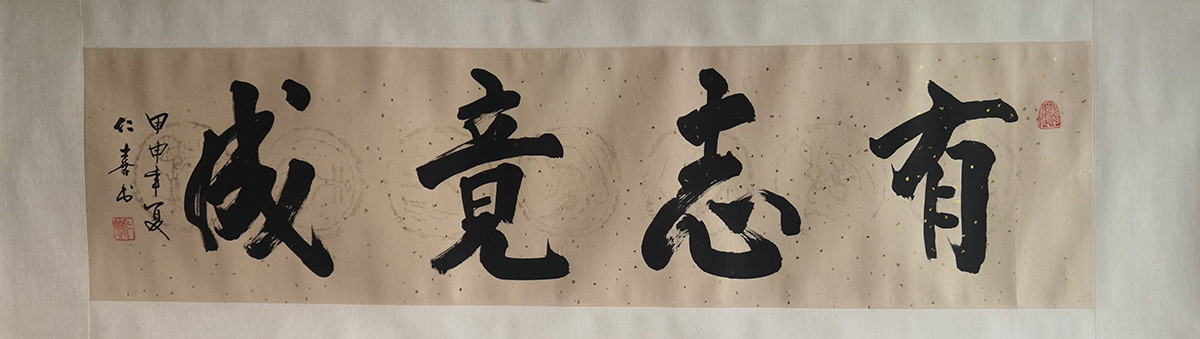 有志竟成
甲申年夏
仁喜书